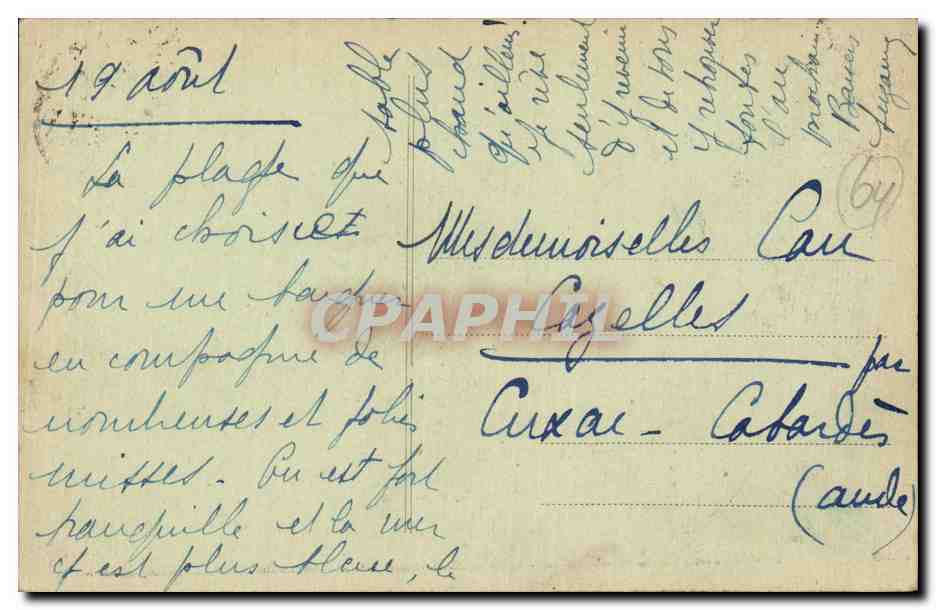 19 août
La plage que
j'ai choisie
pour me baigner
en compagnie de
nombreuses et jolies
misses. On est fort
tranquille et la mer
y est plus bleue, le
sable
plus
chaud
qu'ailleurs
je rêve
seulement
d'y revenir
et de vous
y retrouver
toutes
l'an
prochain
Baisers
Suzanne
64
Mesdemoiselles Cau
Cazelles
par
Cuxac - Cabardès
(aude)
CPARPHIL